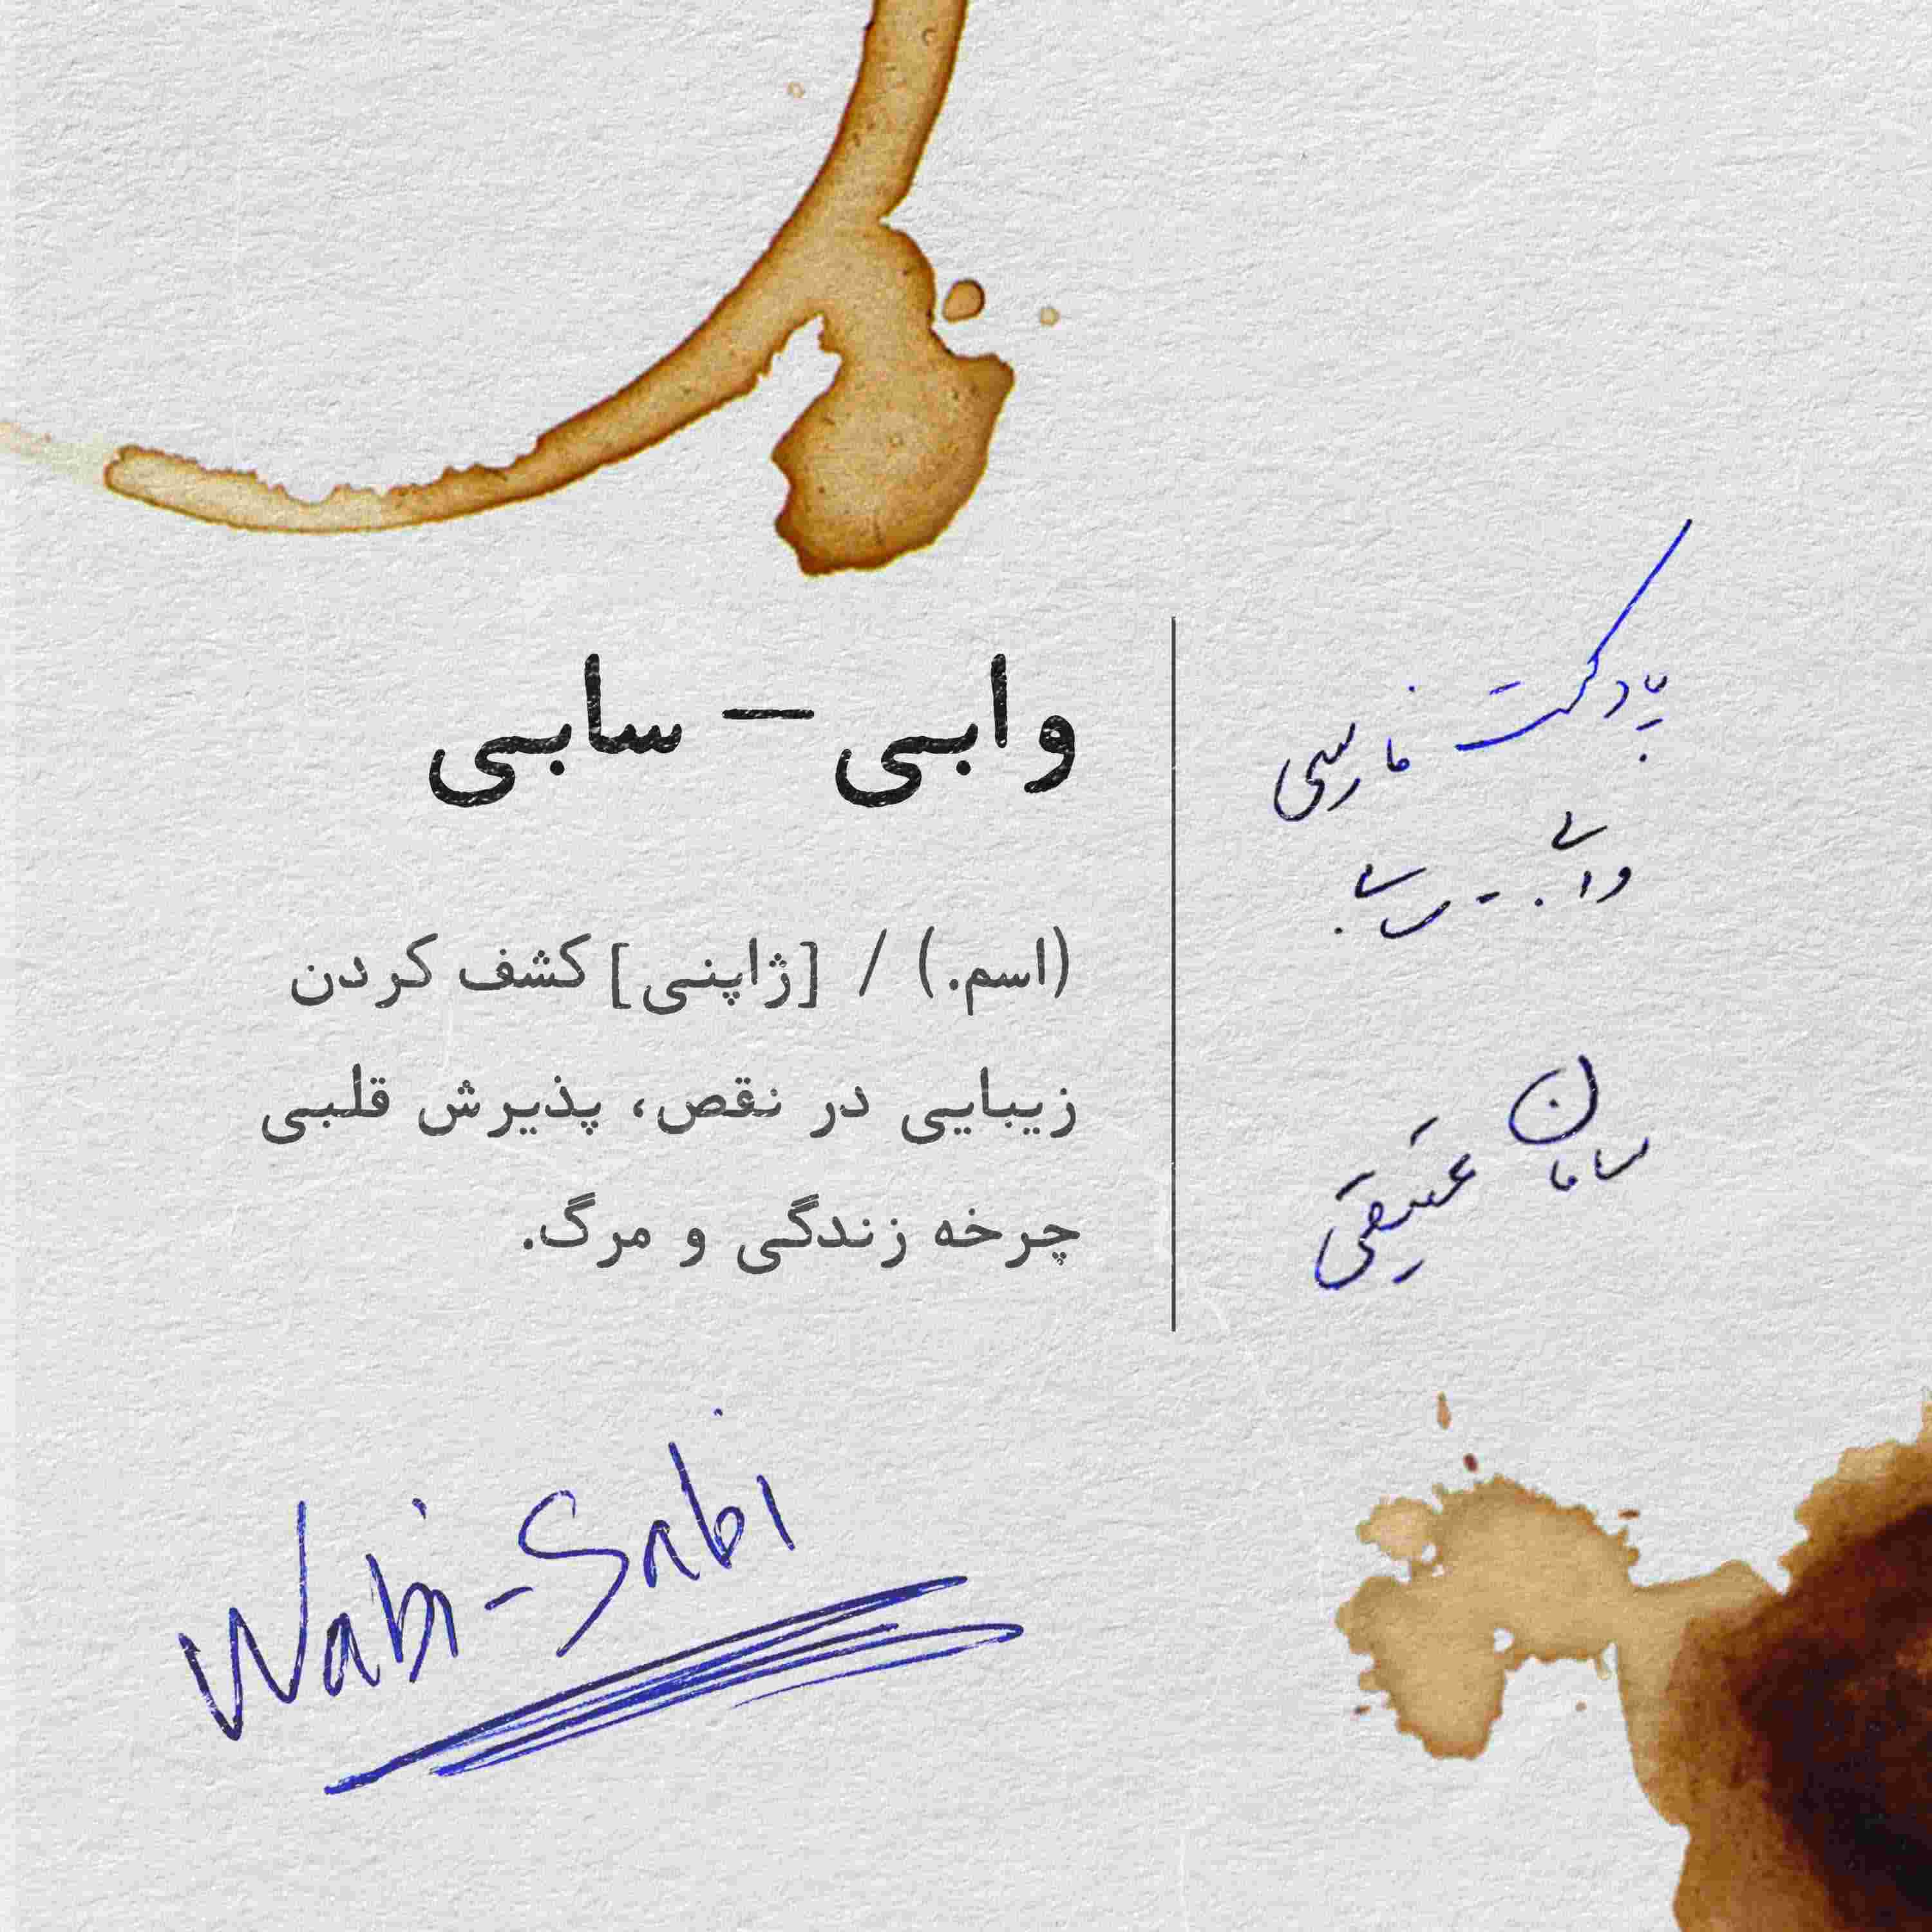 پادکست فارسی
وابی - سابی
سامان عتیقی
وابی – سابی
(اسم.) / [ژاپنی] کشف کردن
زیبایی در نقص، پذیرش قلبی
چرخه زندگی و مرگ.
Wabi-Sabi